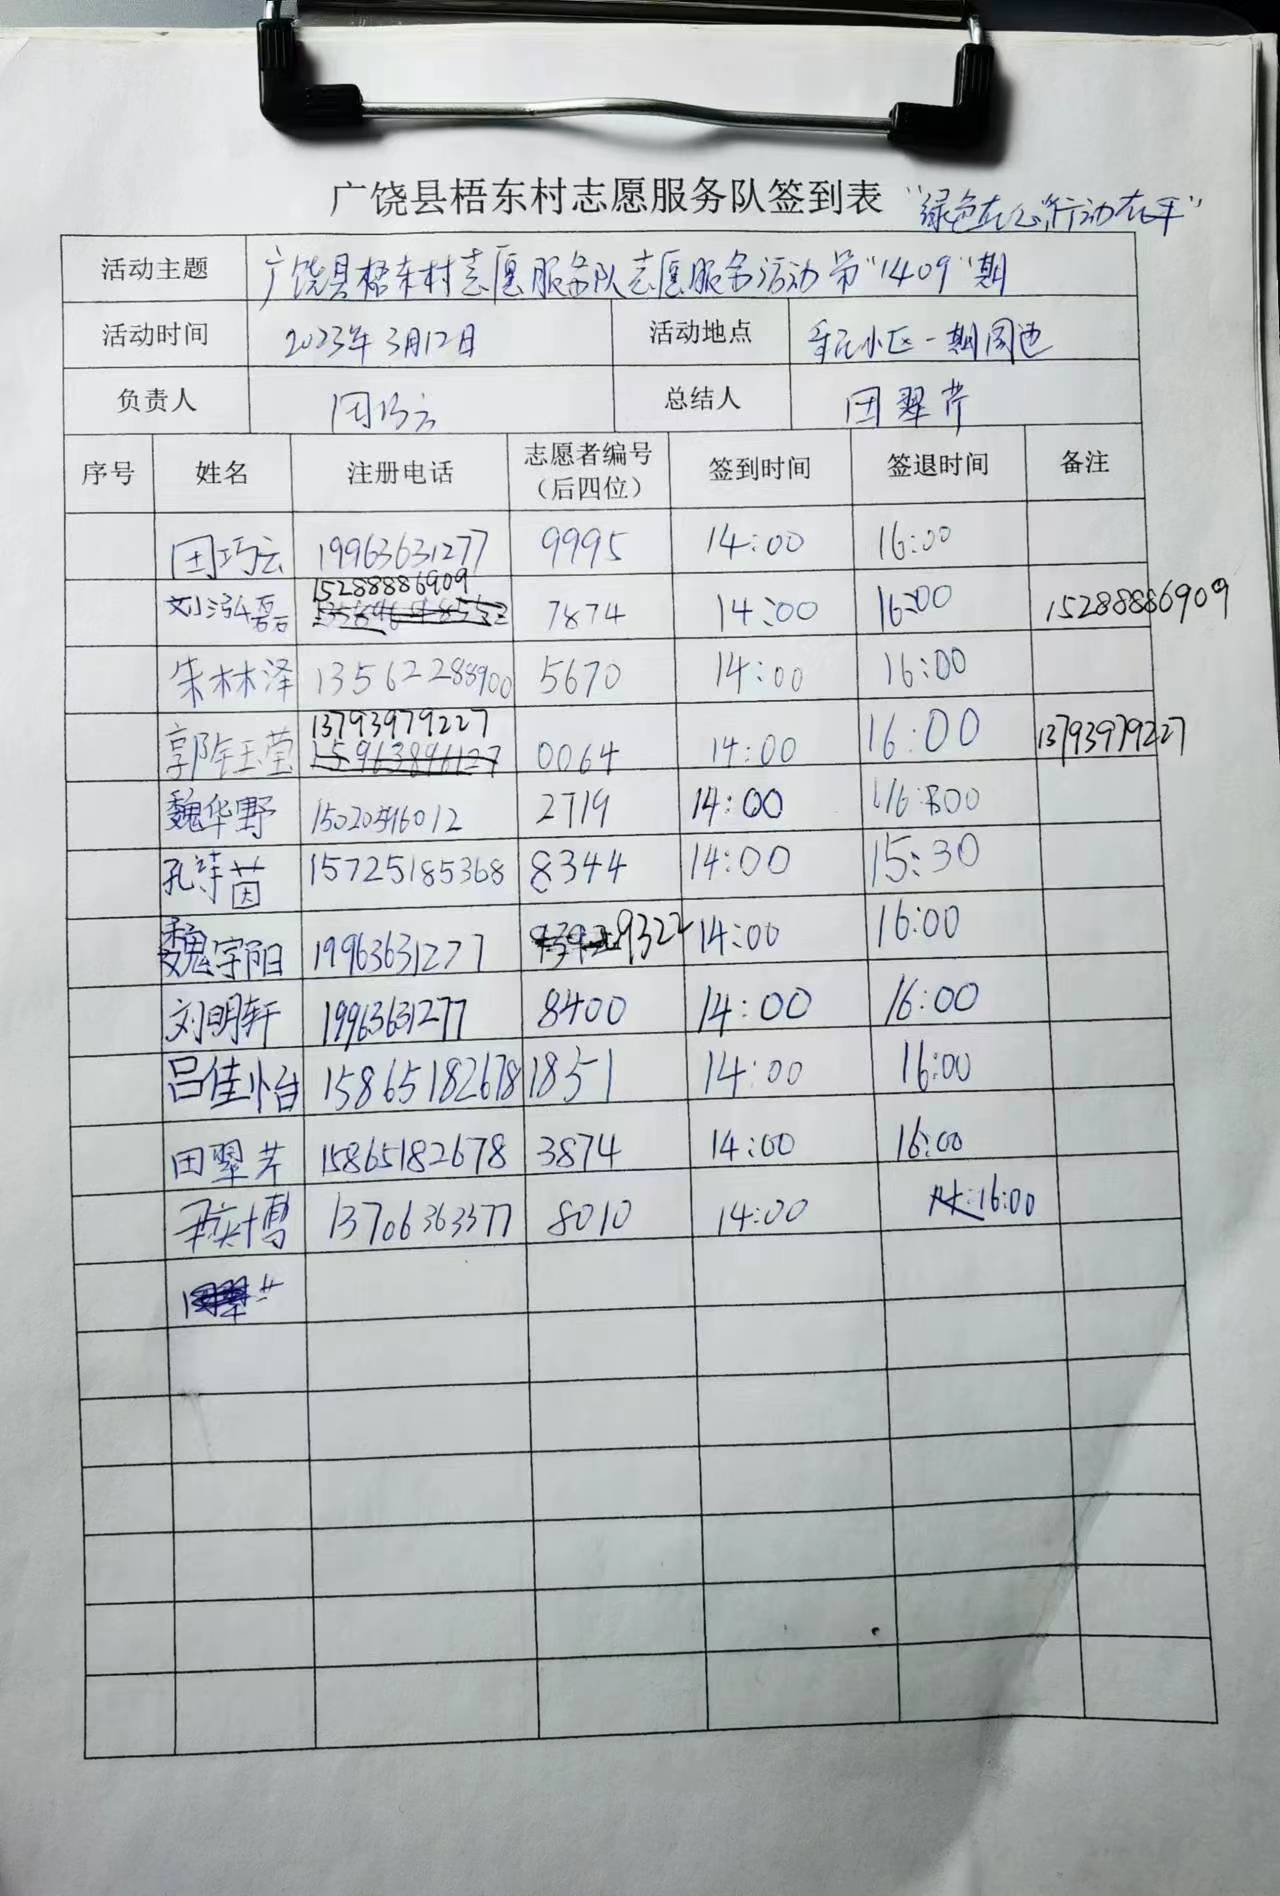 广饶县梧东村志愿服务队签到表 "绿色在心 行动在手"
活动主题 广饶县梧东村志愿服务队志愿服务活动第"1409"期
活动时间 2023年3月12日 活动地点 小区一期周边
负责人 田巧云 总结人 田翠芹
序号 姓名 注册电话 志愿者编号（后四位） 签到时间 签退时间 备注
田巧云 19963631277 9995 14:00 16:00
刘泓磊 15288886909 7874 14:00 16:00 15288886909
朱林泽 13562288900 5670 14:00 16:00
郭钰莹 13793979227 0064 14:00 16:00 13793979227
魏华野 2719 14:00 16:00
孔诗茵 15725185368 8344 14:00 15:30
魏宇阳 19963631277 9322 14:00 16:00
刘明轩 19963631277 8400 14:00 16:00
吕佳怡 15865182678 1851 14:00 16:00
田翠芹 15865182678 3874 14:00 16:00
博 13706363377 8010 14:00 16:00